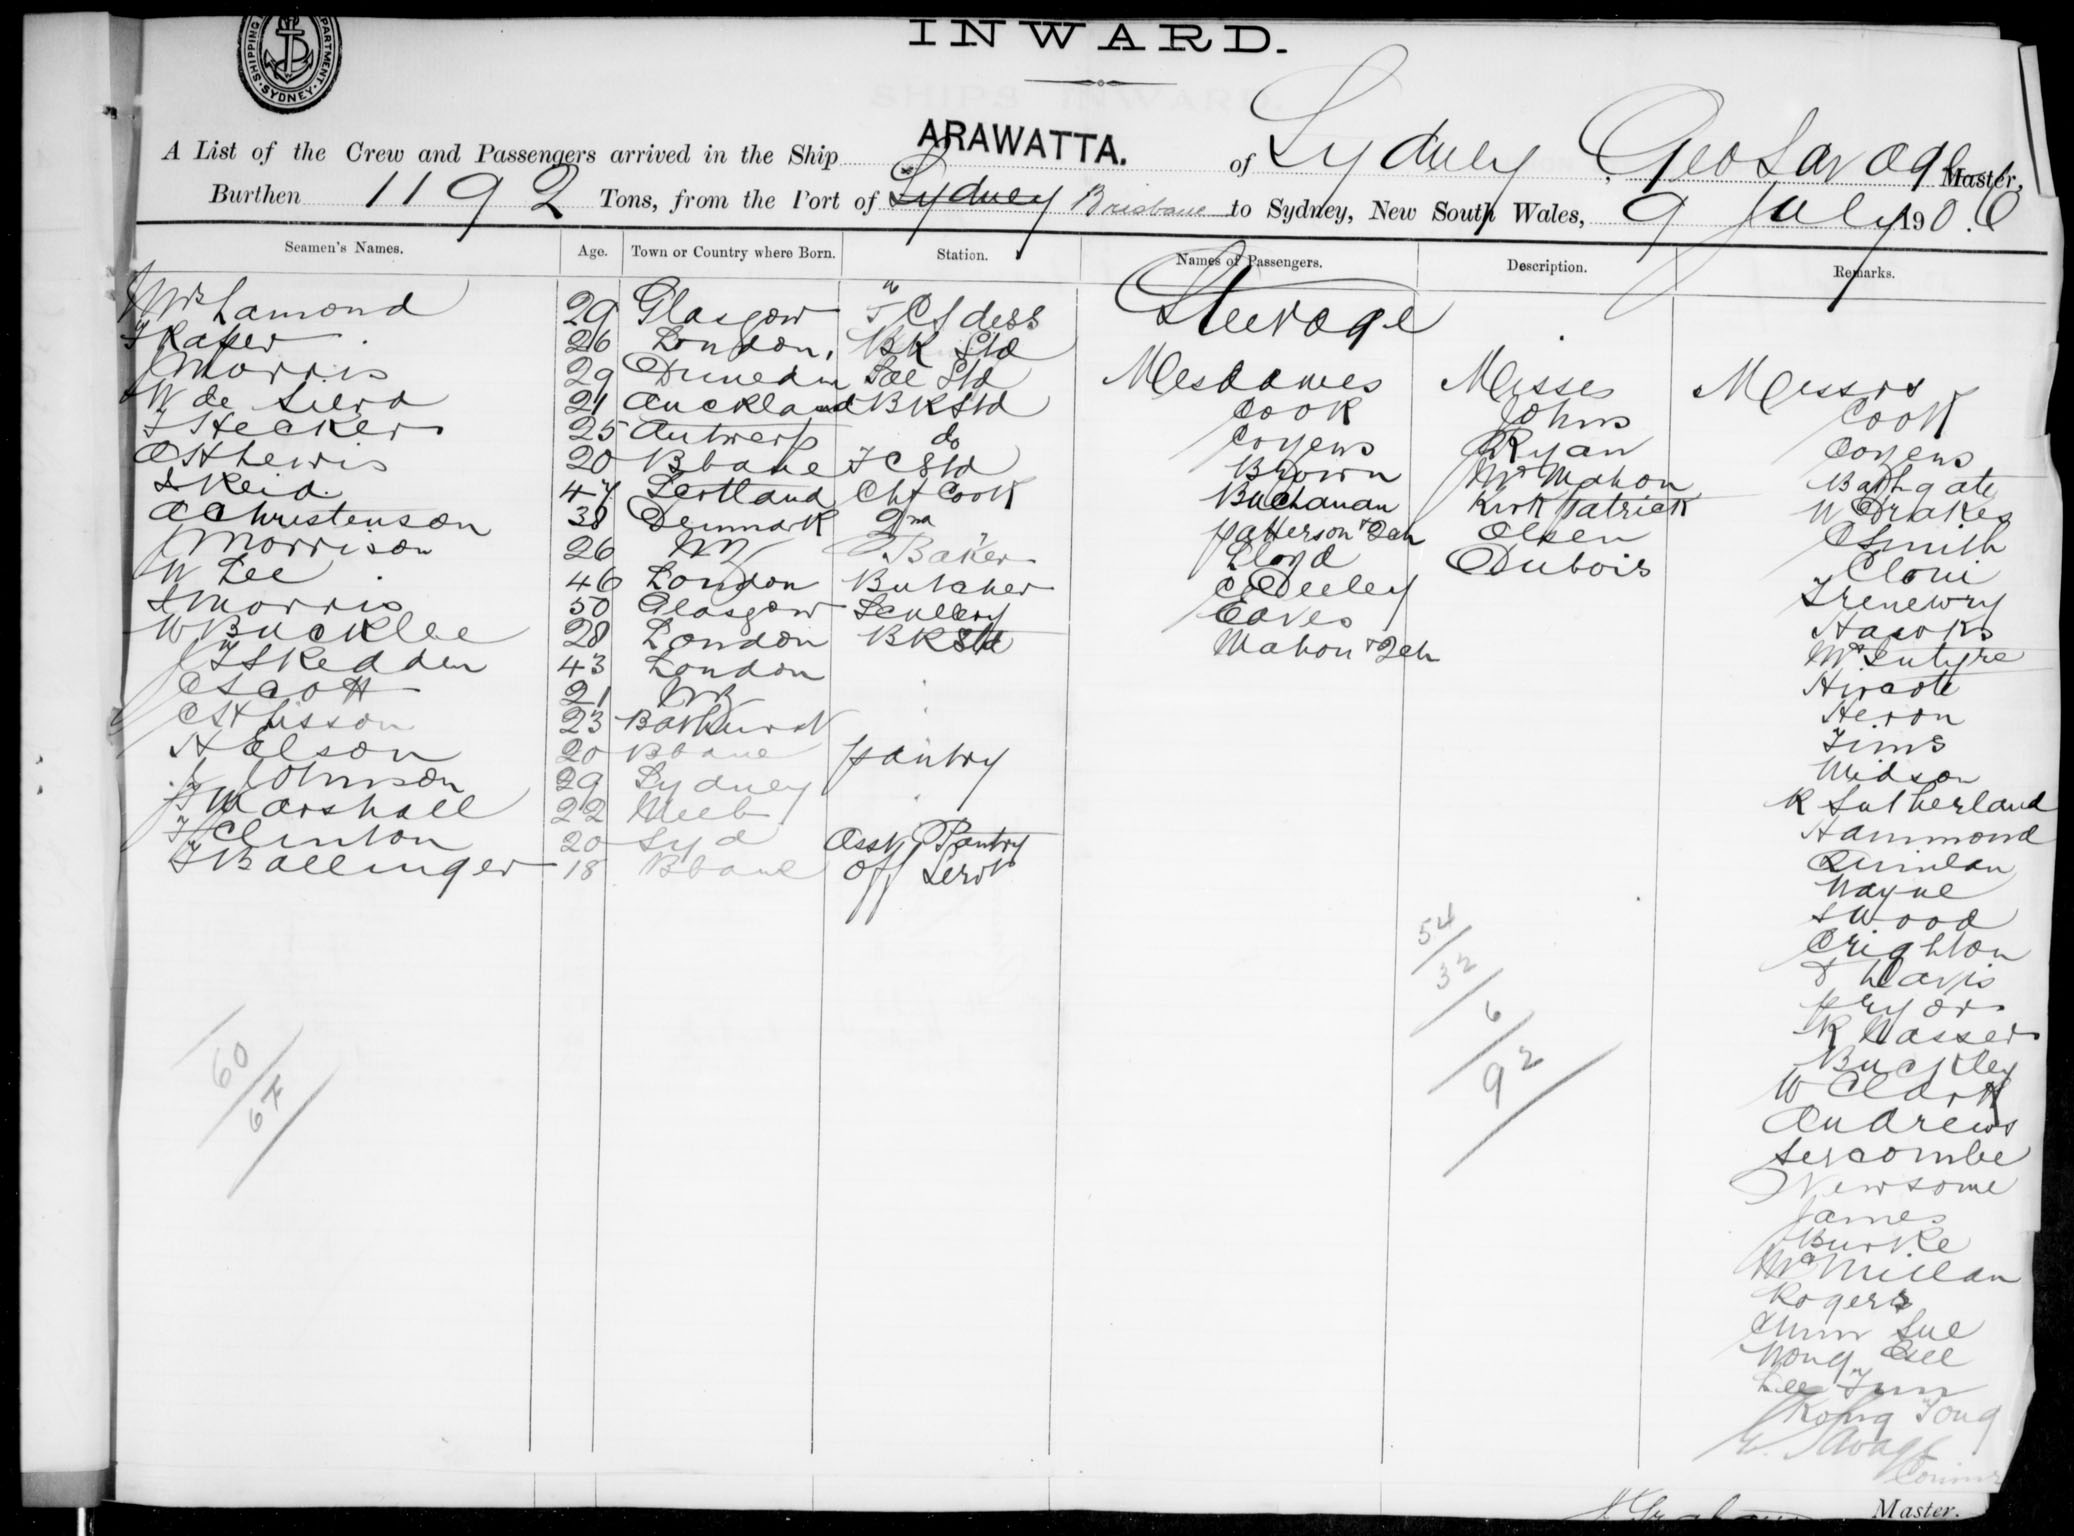 INWARD.
SHIPPING DEPARTMENT SYDNEY
A List of the Crew and Passengers arrived in the Ship ARAWATTA. of Sydney, Geo Savage Master,
Burthen 1192 Tons, from the Port of Sydney Brisbane to Sydney, New South Wales, 9 July 1906
Seamen's Names. Age. Town or Country where Born. Station. Names of Passengers. Description. Remarks.
Steerage
Mesdames Misses Messrs
Mrs Lamond 29 Glasgow
26 London, BK Std
J Morris 29 Dunedin Sal Std
W de 21 Auckland BK Std
25 Antwerp do
C H Lewis 20 Bbane F C Std
Reid 47 Scotland Chf Cook
A Christenson 38 Denmark 2nd "
J Morrison 26 NZ Baker
W Lee 46 London Butcher
S Morris 50 Glasgow Scullery
W Bucklee 28 London BK Std
J Skedden 43 London
C Scott 21 NZ
C H Lisson 23 Bathurst
H Elson 20 Bbane Pantry
J Johnson 29 Sydney
F Marshall 22 Melb
F Clinton 20 Syd Asst Pantry
F Ballinger 18 Bbane Off Servt
Cook
Cozens
Brown
Buchanan
Patterson + 2ch
Lloyd
C Deeley
Eaves
Mahon + 2ch
Johns
Ryan
McMahon
Kirkpatrick
Olsen
Dubois
Cook
Cozens
Bathgate
W Drakes
C Smith
Cloni
Trenewry
McIntyre
Heron
Tims
Midson
R Sutherland
Hammond
Quinlan
Wayne
S Wood
Crighton
Davis
Pryor
R Wasser
Buckley
W Clark
Andrews
Sercombe
Newsome
James
Burke
McMillan
Rogers
Chim Sue
Wong
Lee
Kong Tong
G. Savage
60
67
54
32
6
92
Master.